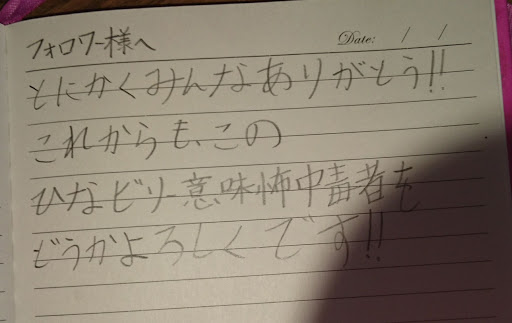 フォロワー様へ
Date: / /
とにかくみんなありがとう!!
これからも、この
ひなビリー意味怖中毒者を
どうかよろしくです!!